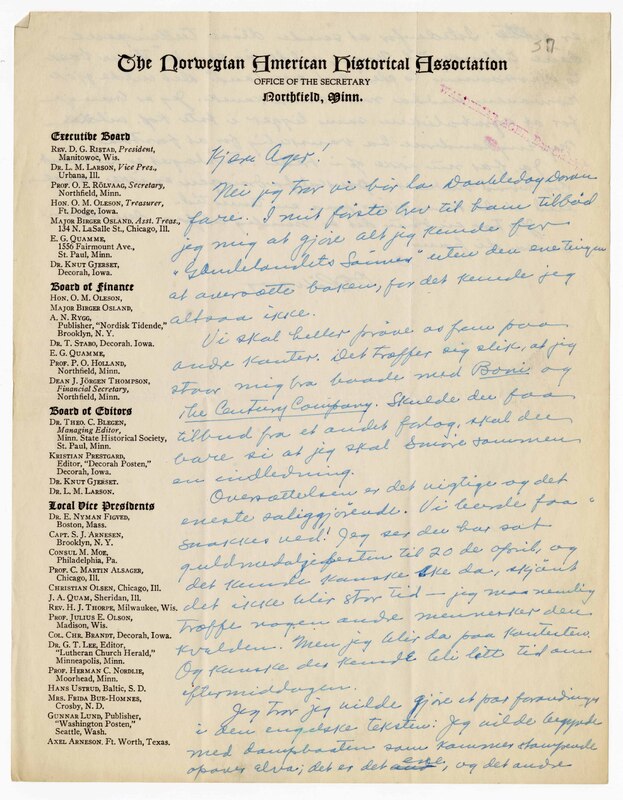 37
The Norwegian American Historical Association
OFFICE OF THE SECRETARY
Northfield, Minn.
WALDEMAR AGER
Executive Board
REV. D. G. RISTAD, President,
Manitowoc, Wis.
DR. L. M. LARSON, Vice Pres.,
Urbana, Ill.
PROF. O. E. RÖLVAAG, Secretary,
Northfield, Minn.
HON. O. M. OLESON, Treasurer,
Ft. Dodge, Iowa.
MAJOR BIRGER OSLAND, Asst. Treas.,
134 N. LaSalle St., Chicago, Ill.
E. G. QUAMME,
1556 Fairmount Ave.,
St. Paul, Minn.
DR. KNUT GJERSET,
Decorah, Iowa.
Board of Finance
HON. O. M. OLESON,
MAJOR BIRGER OSLAND,
A. N. RYGG,
Publisher, "Nordisk Tidende,"
Brooklyn, N. Y.
DR. T. STABO, Decorah, Iowa.
E. G. QUAMME,
PROF. P. O. HOLLAND,
Northfield, Minn.
DEAN J. JÖRGEN THOMPSON,
Financial Secretary,
Northfield, Minn.
Board of Editors
DR. THEO. C. BLEGEN,
Managing Editor,
Minn. State Historical Society,
St. Paul, Minn.
KRISTIAN PRESTGARD,
Editor, "Decorah Posten,"
Decorah, Iowa.
DR. KNUT GJERSET.
DR. L. M. LARSON.
Local Vice Presidents
DR. E. NYMAN FIGVED,
Boston, Mass.
CAPT. S. J. ARNESEN,
Brooklyn, N. Y.
CONSUL M. MOE,
Philadelphia, Pa.
PROF. C. MARTIN ALSAGER,
Chicago, Ill.
CHRISTIAN OLSEN, Chicago, Ill.
J. A. QUAM, Sheridan, Ill.
REV. H. J. THORPE, Milwaukee, Wis.
PROF. JULIUS E. OLSON,
Madison, Wis.
COL. CHR. BRANDT, Decorah, Iowa.
DR. G. T. LEE, Editor,
"Lutheran Church Herald,"
Minneapolis, Minn.
PROF. HERMAN C. NORDLIE,
Moorhead, Minn.
HANS USTRUD, Baltic, S. D.
MRS. FRIDA BUE-HOMNES,
Crosby, N. D.
GUNNAR LUND, Publisher,
"Washington Posten,"
Seattle, Wash.
AXEL ARNESON, Ft. Worth, Texas.
Kjære Ager!
Nei jeg tror vi bir la Doubleday Doran
fare. I mit förste brev til ham tilböd
jeg mig at gjöre alt jeg kunde for
"Gamlelandets Sönner" uten den ene tingen
at oversætte boken, for det kunde jeg
altsaa ikke.
Vi skal heller pröve os fram paa
andre kanter. Det træffer sig slik, at jeg
staar mig bra baade med Bonis og
The Century Company. Skulde du faa
tilbud fra et andet forlag, skal du
bare si at jeg skal smöre sammen
en indledning.
Oversættelsen er det vigtige og det
eneste saliggjörende. Vi burde faa
snakkes ved! Jeg ser du har sat
guldmedaljefesten til 20 de april, og
det kunde kanske ske da, skjönt
det ikke blir stor tid — jeg maa nemlig
træffe nogen andre mennesker den
kvelden. Men jeg blir da paa kanten.
Og kanske det kunde bli litt tid om
eftermiddagen.
Jeg tror jeg vilde gjöre et par forandringer
i den engelske teksten: Jeg vilde begynde
med dampbaaten som kommer stampende
opover elva; det er det ene, og det andre